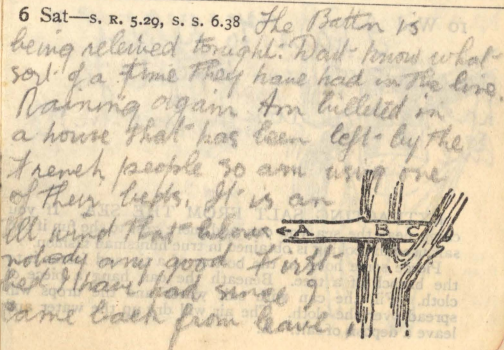 6 Sat—S. R. 5.29, S. S. 6.38 The Battn is
being releived tonight. Dont know what
sort of a time they have had in the line
Raining again Am billeted in
a house that has been left by the
French people so am using one
of their beds. It is an
Ill wind that blows
A B C
nobody any good First
bed I have had since I
came back from leave